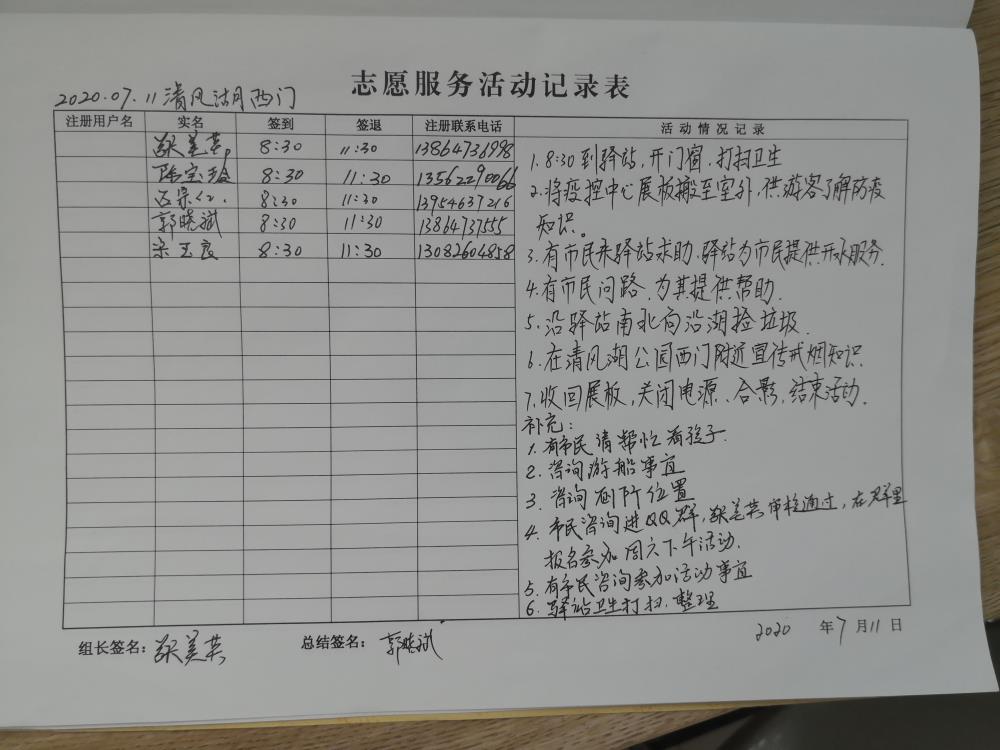 志愿服务活动记录表
2020.07.11清风湖西门
注册用户名 实名 签到 签退 注册联系电话 活动情况记录
美英 8:30 11:30 13864736998
陈宝玲 8:30 11:30 13562290066
8:30 11:30 13954637216
郭晓斌 8:30 11:30 13864737555
宋玉良 8:30 11:30 13082604858
1. 8:30到驿站,开门窗,打扫卫生
2. 将疫控中心展板搬至室外,供游客了解防疫
知识。
3. 有市民来驿站求助,驿站为市民提供开水服务.
4. 有市民问路,为其提供帮助.
5. 沿驿站南北向沿湖捡垃圾.
6. 在清风湖公园西门附近宣传戒烟知识.
7. 收回展板,关闭电源、合影,结束活动.
补充:
1. 有市民请帮忙看孩子.
2. 咨询游船事宜
3. 咨询厕所位置
4. 市民咨询进QQ群,美英审核通过,在群里
报名参加周六下午活动.
5. 有市民咨询参加活动事宜
6. 驿站卫生打扫、整理
组长签名: 美英 总结签名: 郭晓斌 2020 年7月11日